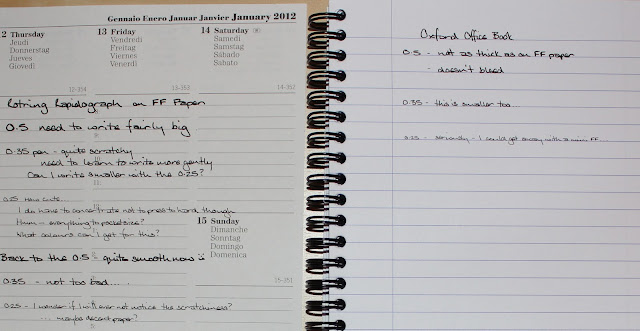 Gennaio Enero Januar Janvier January 2012
2 Thursday
Jeudi
Donnerstag
Jueves
Giovedì
12-354
13 Friday
Vendredi
Freitag
Viernes
Venerdì
13-353
14 Saturday
Samedi
Samstag
Sábado
Sabato
14-352
Rotring Rapidograph on FF Paper
0.5 need to write fairly big
0.35 pen - quite scratchy
need to learn to write more gently
Can I write smaller with the 0.25?
0.25 
I do have to concentrate not to press to hard though
Hmm - everything to pocket size?
What colours can I get for this?
15 Sunday
Dimanche
Sonntag
Domingo
Domenica
15-351
Back to the 0.5 quite smooth now
0.35 - not too bad....
0.25 - I wonder if I will ever not notice the scratchiness?
... maybe decent paper?
Oxford Office Book
0.5 - not as thick as on FF paper
- doesn't bleed
0.35 - this is smaller too
0.25 - seriously - I could get away with a mini FF...